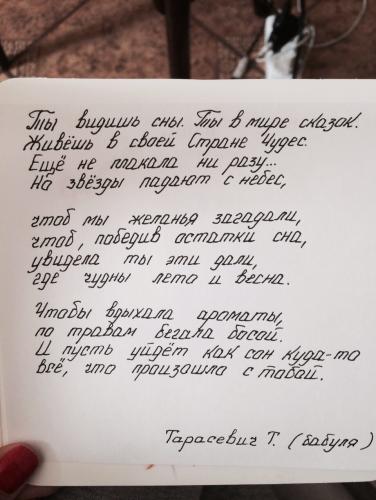 Ты видишь сны. Ты в мире сказок.
Живёшь в своей Стране Чудес.
Ещё не плакала ни разу...
Но звёзды падают с небес,
чтоб мы желанья загадали,
чтоб, победив остатки сна,
увидела ты эти дали,
где чудны лето и весна.
Чтобы вдыхала ароматы,
по травам бегала босой.
И пусть уйдёт как сон куда-то
всё, что произошло с тобой.
Тарасевич Т. (бабуля)